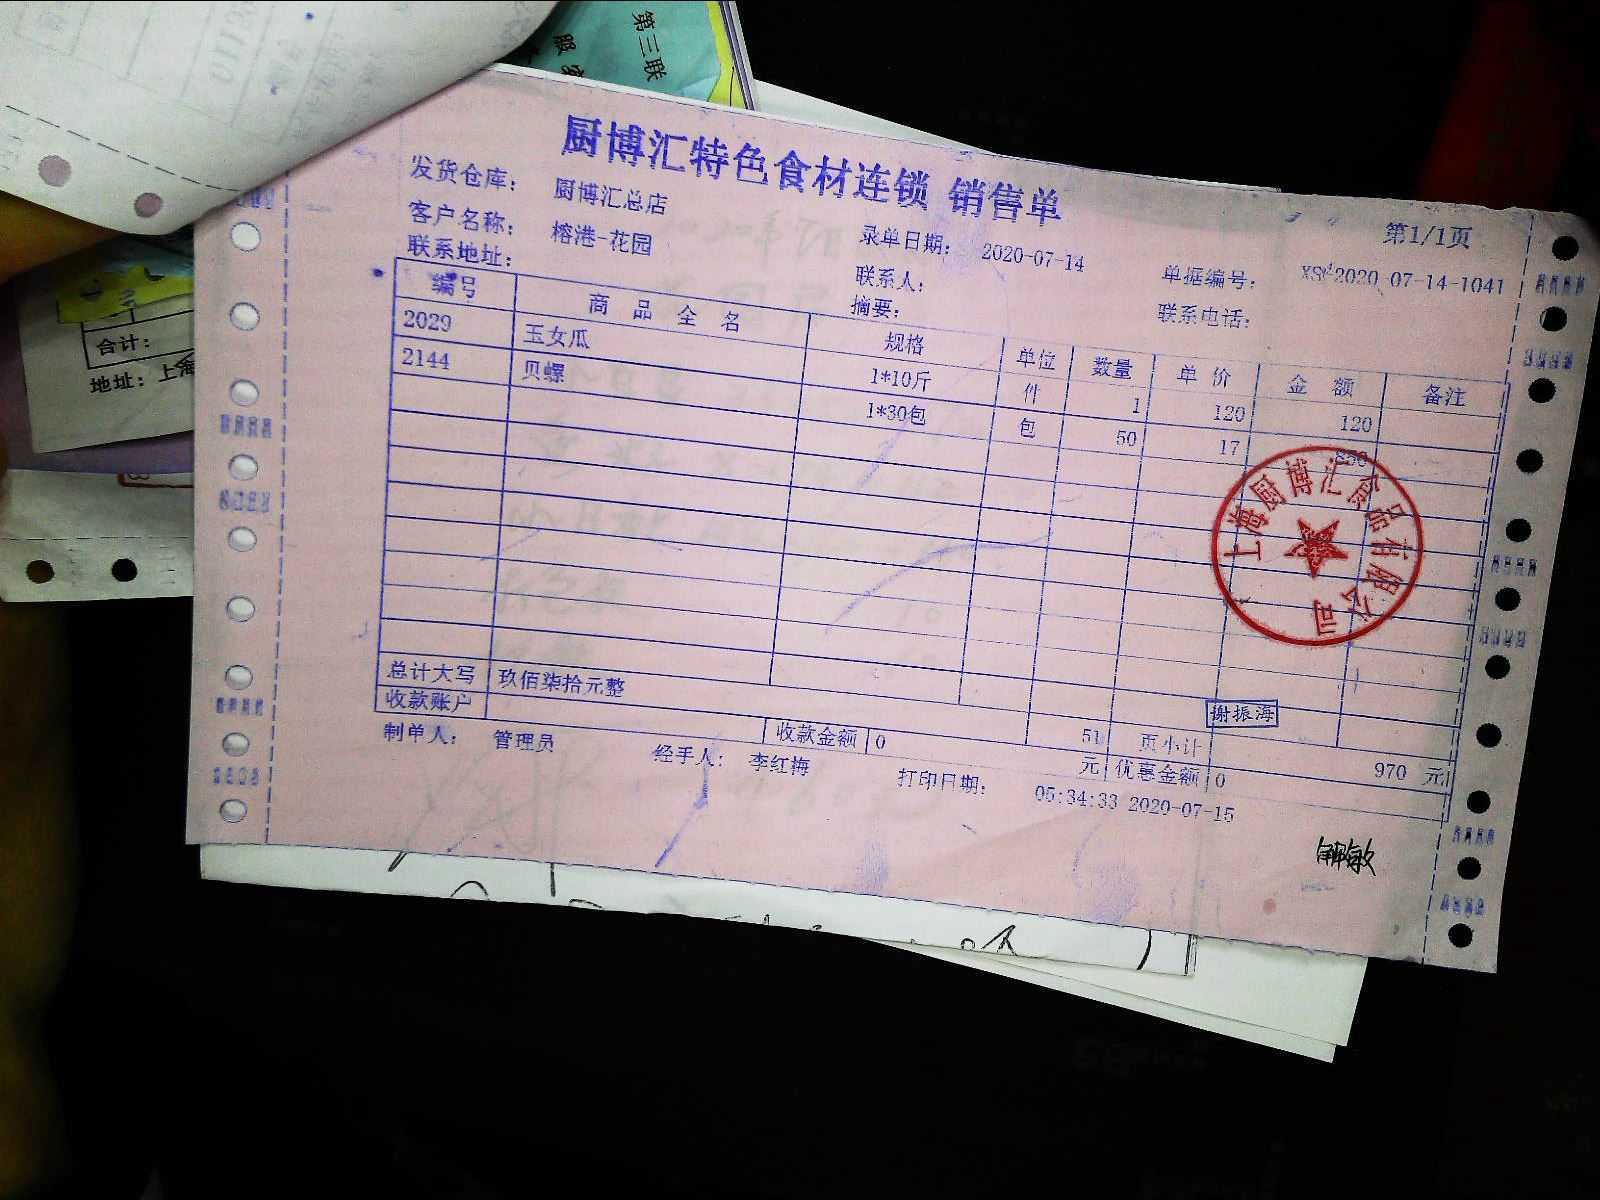 第三联
合计:
地址: 上海
厨博汇特色食材连锁 销售单
第1/1页
发货仓库: 厨博汇总店
录单日期: 2020-07-14
单据编号: XSC2020 07-14-1041
客户名称: 榕港-花园
联系人:
联系电话:
联系地址:
摘要:
编号 商品全名 规格 单位 数量 单价 金额 备注
2029 玉女瓜 1*10斤 件 1 120 120
2144 贝螺 1*30包 包 50 17 850
上海厨博汇食品有限公司
谢振海
总计大写 玖佰柒拾元整 51 页小计 970 元
收款账户 收款金额 0 元 优惠金额 0
制单人: 管理员 经手人: 李红梅 打印日期: 05:34:33 2020-07-15